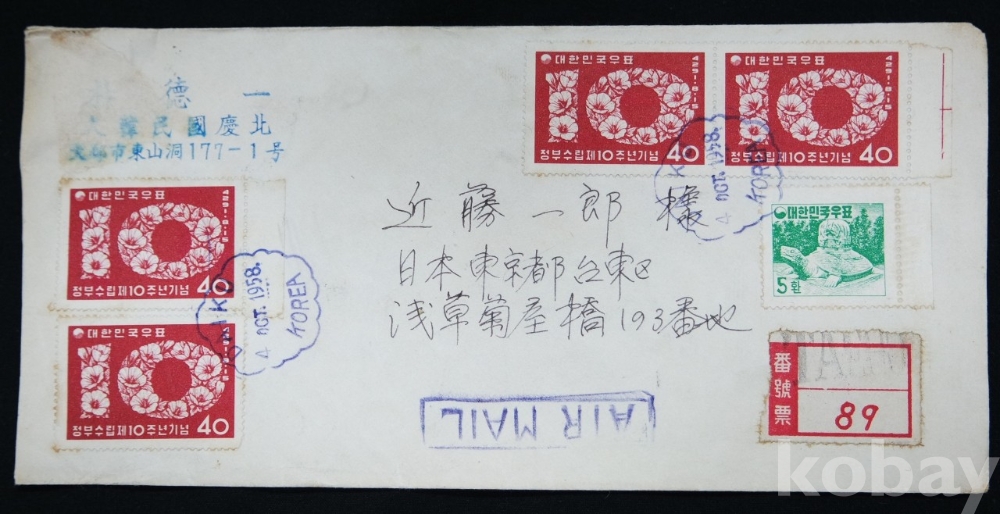 德 一
韓民國慶北
大邱市東山洞177-1号
대한민국우표
4291.8.15
정부수립제10주년기념 40
대한민국우표
4291.8.15
정부수립제10주년기념 40
4 OCT. 1958.
KOREA
대한민국우표
4291.8.15
정부수립제10주년기념 40
대한민국우표
정부수립제10주년기념 40
4 OCT. 1958.
KOREA
近藤一郎 様
日本東京都台東区
浅草菊屋橋193番地
대한민국우표
5환
番號票
89
AIR MAIL
kobay